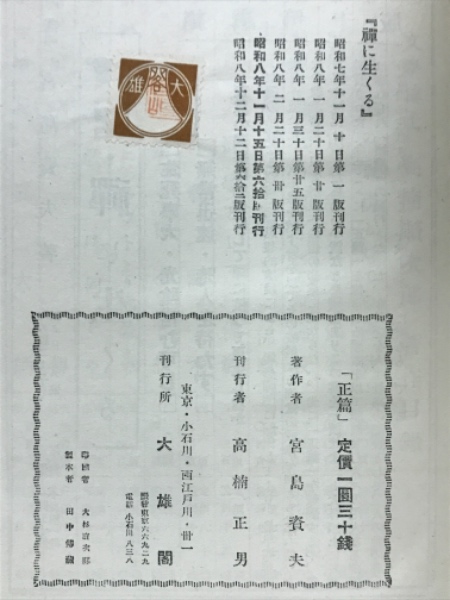 『禪に生くる』
昭和七年十一月十日第一版刊行
昭和八年一月二十日第廿版刊行
昭和八年一月三十日第廿五版刊行
昭和八年二月二十日第卅版刊行
昭和八年十一月十五日第六拾版刊行
昭和八年十二月十二日第六拾二版刊行
大雄
「正篇」定價一圓三十錢
著作者 宮島資夫
刊行者 高楠正男
東京・小石川・西江戸川・廿一
刊行所 大雄閣
振替東京六六九二九
電話小石川八三八
印刷者
製本者 田中